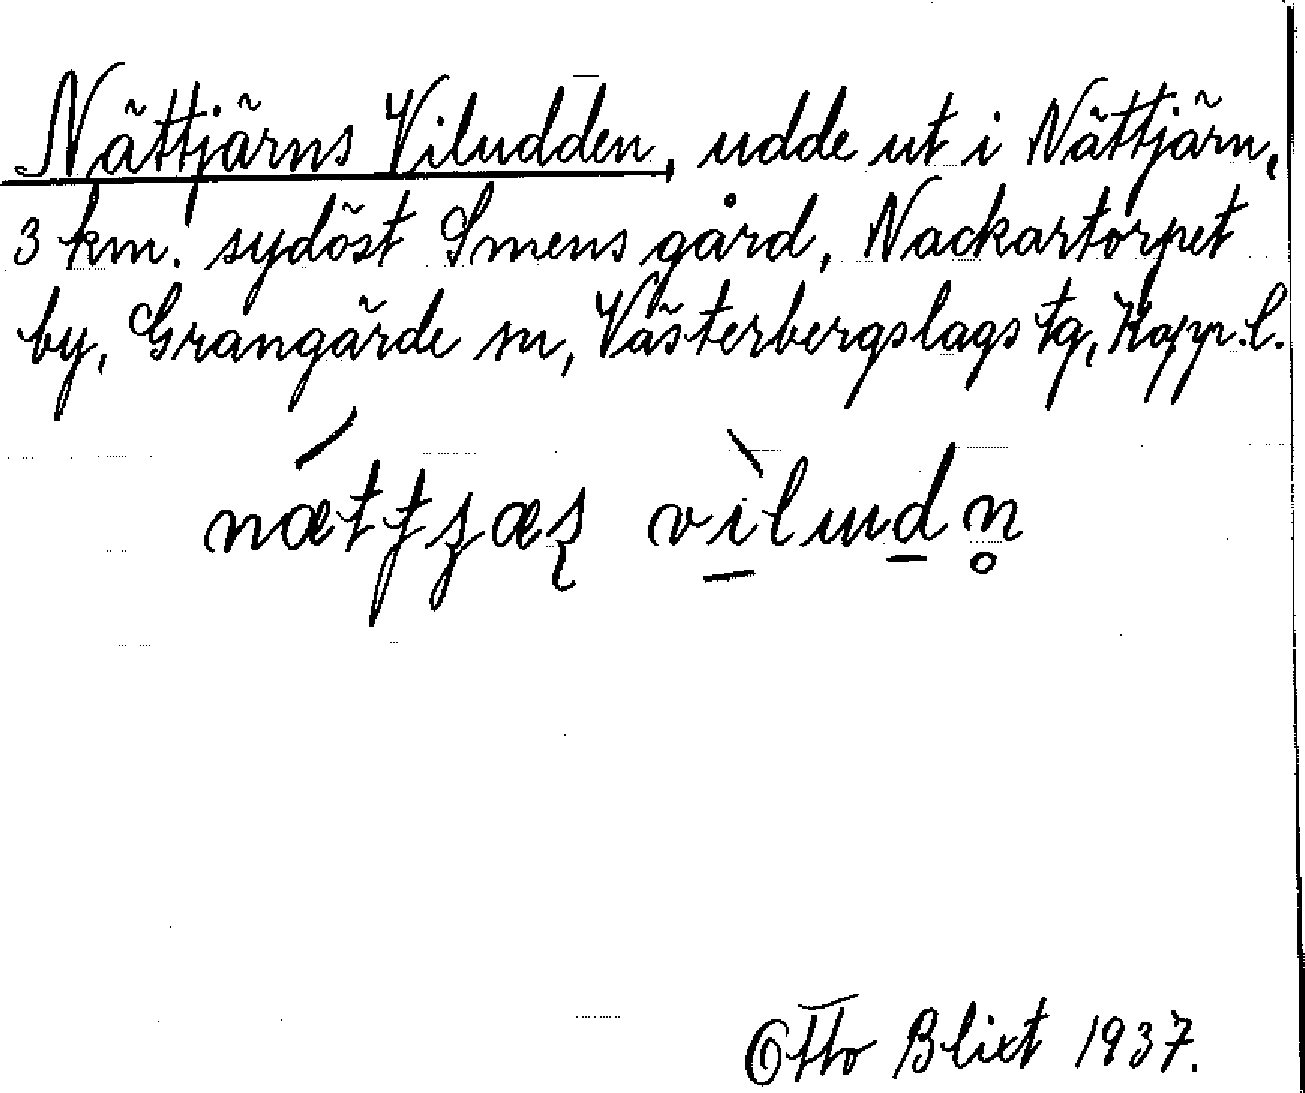 Nättjärns Viludden, udde ut i Nättjärn,
3 km. sydöst Smens gård, Nackartorpet
by, Grangärde sn, Västerbergslags tg, Kopp. l.
Otto Blixt 1937.